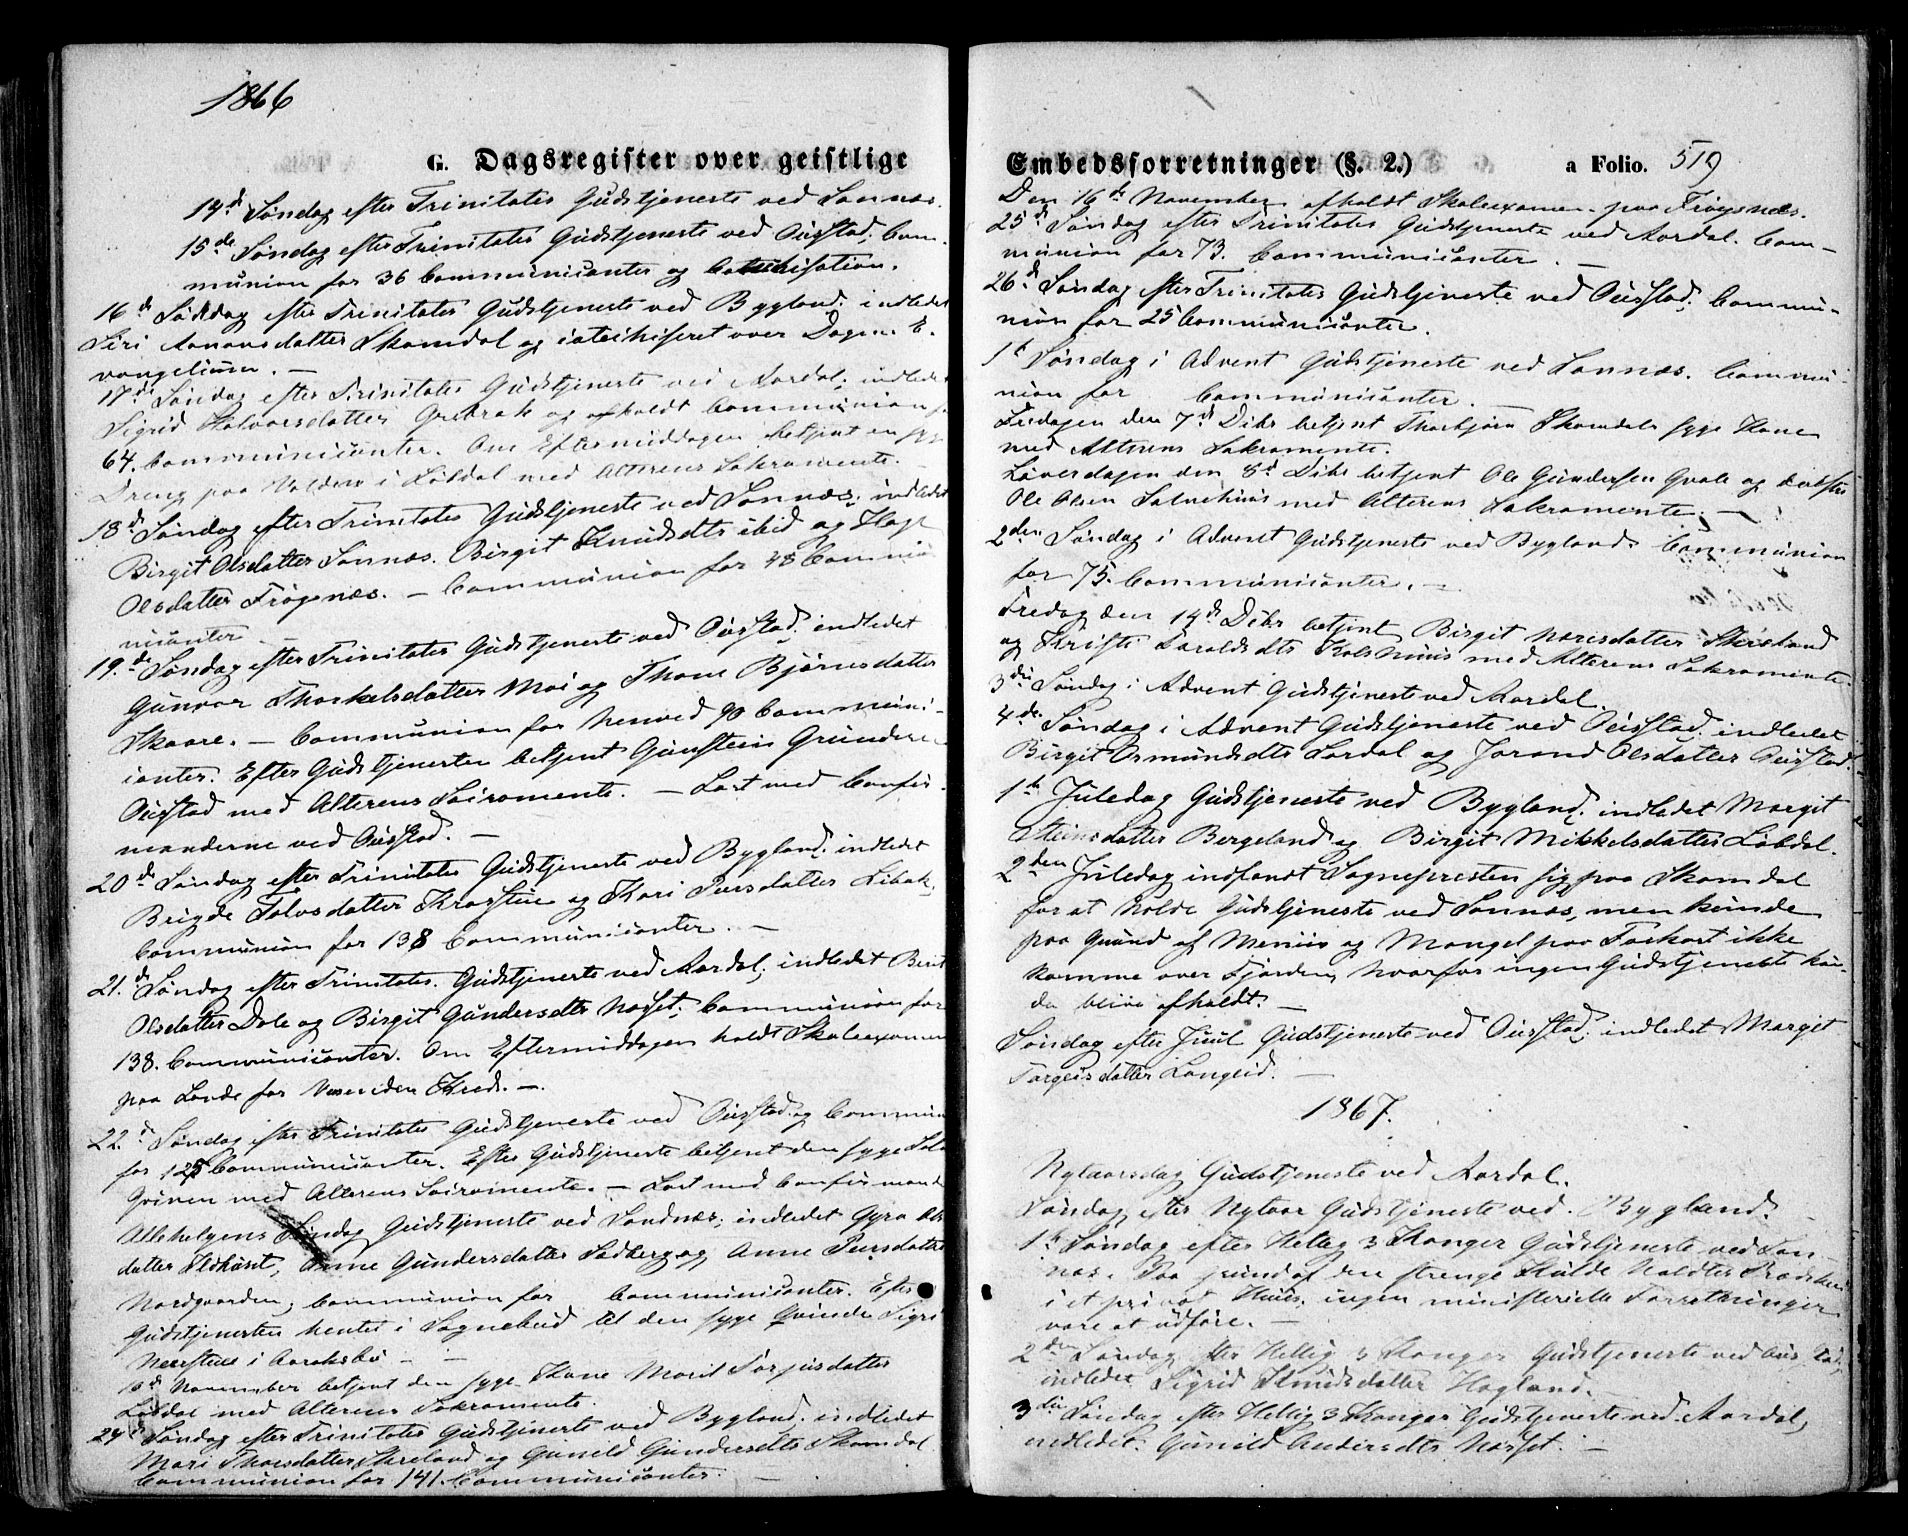 1866
G. Dagsregister over geistlige
14d Søndag efter Trinitatis Gudstjeneste ved Sannæs.
15de Søndag efter Trinitatis Gudstjeneste ved Øustad; Com-
munion for 36 Communicanter og Catechisation.
16d Søndag efter Trinitatis Gudstjeneste ved Bygland; indledet
Siri Aanonsdatter Skomdal og catechiseret over Dagens E-
vangelium. —
17de Søndag efter Trinitatis Gudstjeneste ved Aardal; indledet
Sigrid Halvorsdatter og afholdt Communion for
64 Communicanter. Om Eftermiddagen betjent en syg
Dreng paa i Lobdal med Alterens Sakramente.
18d Søndag efter Trinitatis Gudstjeneste ved Sannæs; indledet
Birgit Olsdatter Sannæs. Birgit Knudsdtr ibid og
Olsdatter Frøgsnæs. — Communion for 48 Commu
nicanter —
19de Søndag efter Trinitatis Gudstjeneste ved Øustad; indledet
Gunvor Thorkelsdatter Moi og Thone Bjørnsdatter
Skaare. — Communion for henved 90 Communi-
canter. Efter Gudstjenesten betjent Gunstein Gunder
Øustad med Alterens Sacramente. — Læst med Confir-
manderne ved Øustad. —
20d Søndag efter Trinitatis Gudstjeneste ved Bygland; indledet
Brigde Tolvsdatter og Kari Persdatter
Communion for 138 Communicanter. —
21d Søndag efter Trinitatis Gudstjeneste ved Aardal; indledet Berit
Olsdatter Dale og Birgit Gundersdtr Næset; Communion for
138 Communicanter. Om Eftermiddagen holdt Skoleexamen
paa Lande for Kreds. —
22d Søndag efter Trinitatis Gudstjeneste ved Øustad og Commun
for 125 Communicanter. Efter Gudstjeneste betjent den syge
med Alterens Sacramente. — Læst med Confirmand
Allehelgens Søndag Gudstjeneste ved Sandnæs; indledet Gyro Ols
datter Anne Gundersdatter og Anne Persdatter
Nordgaarden, Communion for Communicanter. Efter
Gudstjenesten hentet i Sognebud til den syge Qvinde Sigri
i Aaraksbø —
10d November betjent den syge Kone Marit Torjusdatter
Lobdal med Alterens Sakramente.
24d Søndag efter Trinitatis Gudstjeneste ved Bygland; indledet
Mari Thorsdatter Skreland og Gunild Gundersdtr Skomdal
Communion for 141 Communicanter. —
Embedsforretninger (§. 2.)
a Folio. 519
Den 16de November afholdt Skoleexamen paa Frøysnæs.
25d Søndag efter Trinitatis Gudstjeneste ved Aardal. Com-
munion for 73 Communicanter. —
26d Søndag efter Trinitatis Gudstjeneste ved Øustad; Commu-
nion for 25 Communicanter.
1st Søndag i Advent Gudstjeneste ved Sannæs. Commu-
nion for Communicanter. —
Fredagen den 7d Dcbr betjent Thorbjørn Skomdals syge Kone
med Alterens Sakramente.
Løverdagen den 8d Dcbr betjent Ole Gundersen Qvale og
Ole Olsen med Alterens Sakramente. —
2den Søndag i Advent Gudstjeneste ved Bygland; Communion
for 75 Communicanter. —
Fredag den 14d Dcbr betjent Birgit Skreland
og Kristi Haraldsdtr med Alterens Sakramente.
3die Søndag i Advent Gudstjeneste ved Aardal.
4de Søndag i Advent Gudstjeneste ved Øustad; indledet
Birgit Osmundsdtr og Jorand Olsdatter Øustad. —
1ste Juledag Gudstjeneste ved Bygland; indledet Margit
Steinsdatter Bergeland og Birgit Mikkelsdatter Lobdal.
2den Juledag indfandt Sognepresten sig paa Skomdal
for at holde Gudstjeneste ved Sannæs, men kunde
paa Grund af Meniis og Mangel paa Forkost ikke
komme over Fjorden, hvorfor ingen Gudstjeneste kun-
de blive afholdt. —
Søndag efter Juul Gudstjeneste ved Øustad; indledet Margit
Targeisdatter Langeid. —
1867.
Nytaarsdag Gudstjeneste ved Aardal.
Søndag efter Nytaar Gudstjeneste ved Bygland. —
1ste Søndag efter Hellig 3 Konger Gudstjeneste ved San-
næs. Paa Grund af den strenge Kulde holdtes Prædiken
i et privat Huus, ingen ministerielle Forretninger
vare at udføre. —
2den Søndag efter Hellig 3 Konger Gudstjeneste ved Øustad,
indledet Sigrid Knudsdatter Hagland.
3die Søndag efter Hellig 3 Konger Gudstjeneste ved Aardal,
indledet Gunild Andersdtr Næset. —